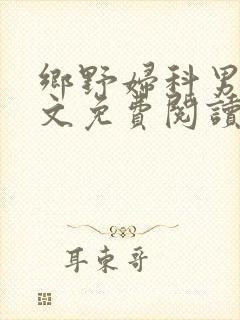 鄉野婦科男
文免費閱讀
耳東哥